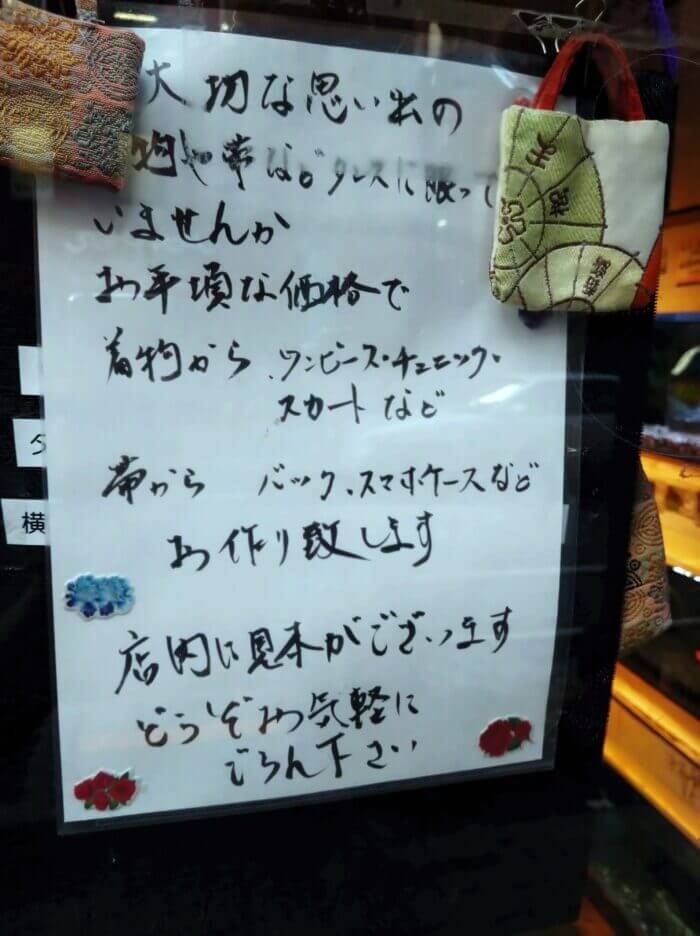 大切な思い出の
着物や帯などタンスに眠って
いませんか
お手頃な価格で
着物から、ワンピース・チュニック、
スカートなど
帯から バック、スマホケースなど
お作り致します
店内に見本がございます
どうぞお気軽に
ごらん下さい
横